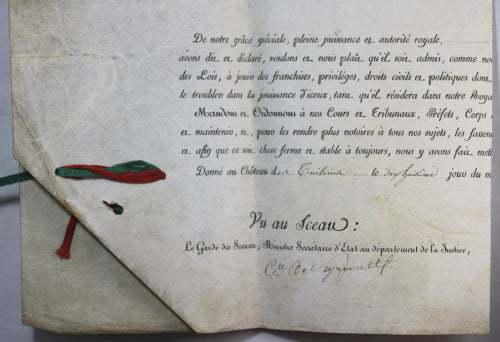 De notre grâce spéciale, pleine puissance et autorité royale,
avons dit et déclaré, voulons et nous plaît qu'il soit admis, comme no
des Lois, à jouir des franchises, privilèges, droits civils et politiques dont
le troubler dans la jouissance d'iceux, tant qu'il résidera dans notre Roya
Mandons et Ordonnons à nos Cours et Tribunaux, Préfets, Corps
et maintenir, et, pour les rendre plus notoires à tous nos sujets, les fassent
et afin que ce soit chose ferme et stable à toujours, nous y avons fait mett
Donné au Château des Tuileries le dixhuitième jour du m
Vu au Sceau :
Le Garde des Sceaux, Ministre Secrétaire d'État au département de la Justice,
Cte de Peyronnet